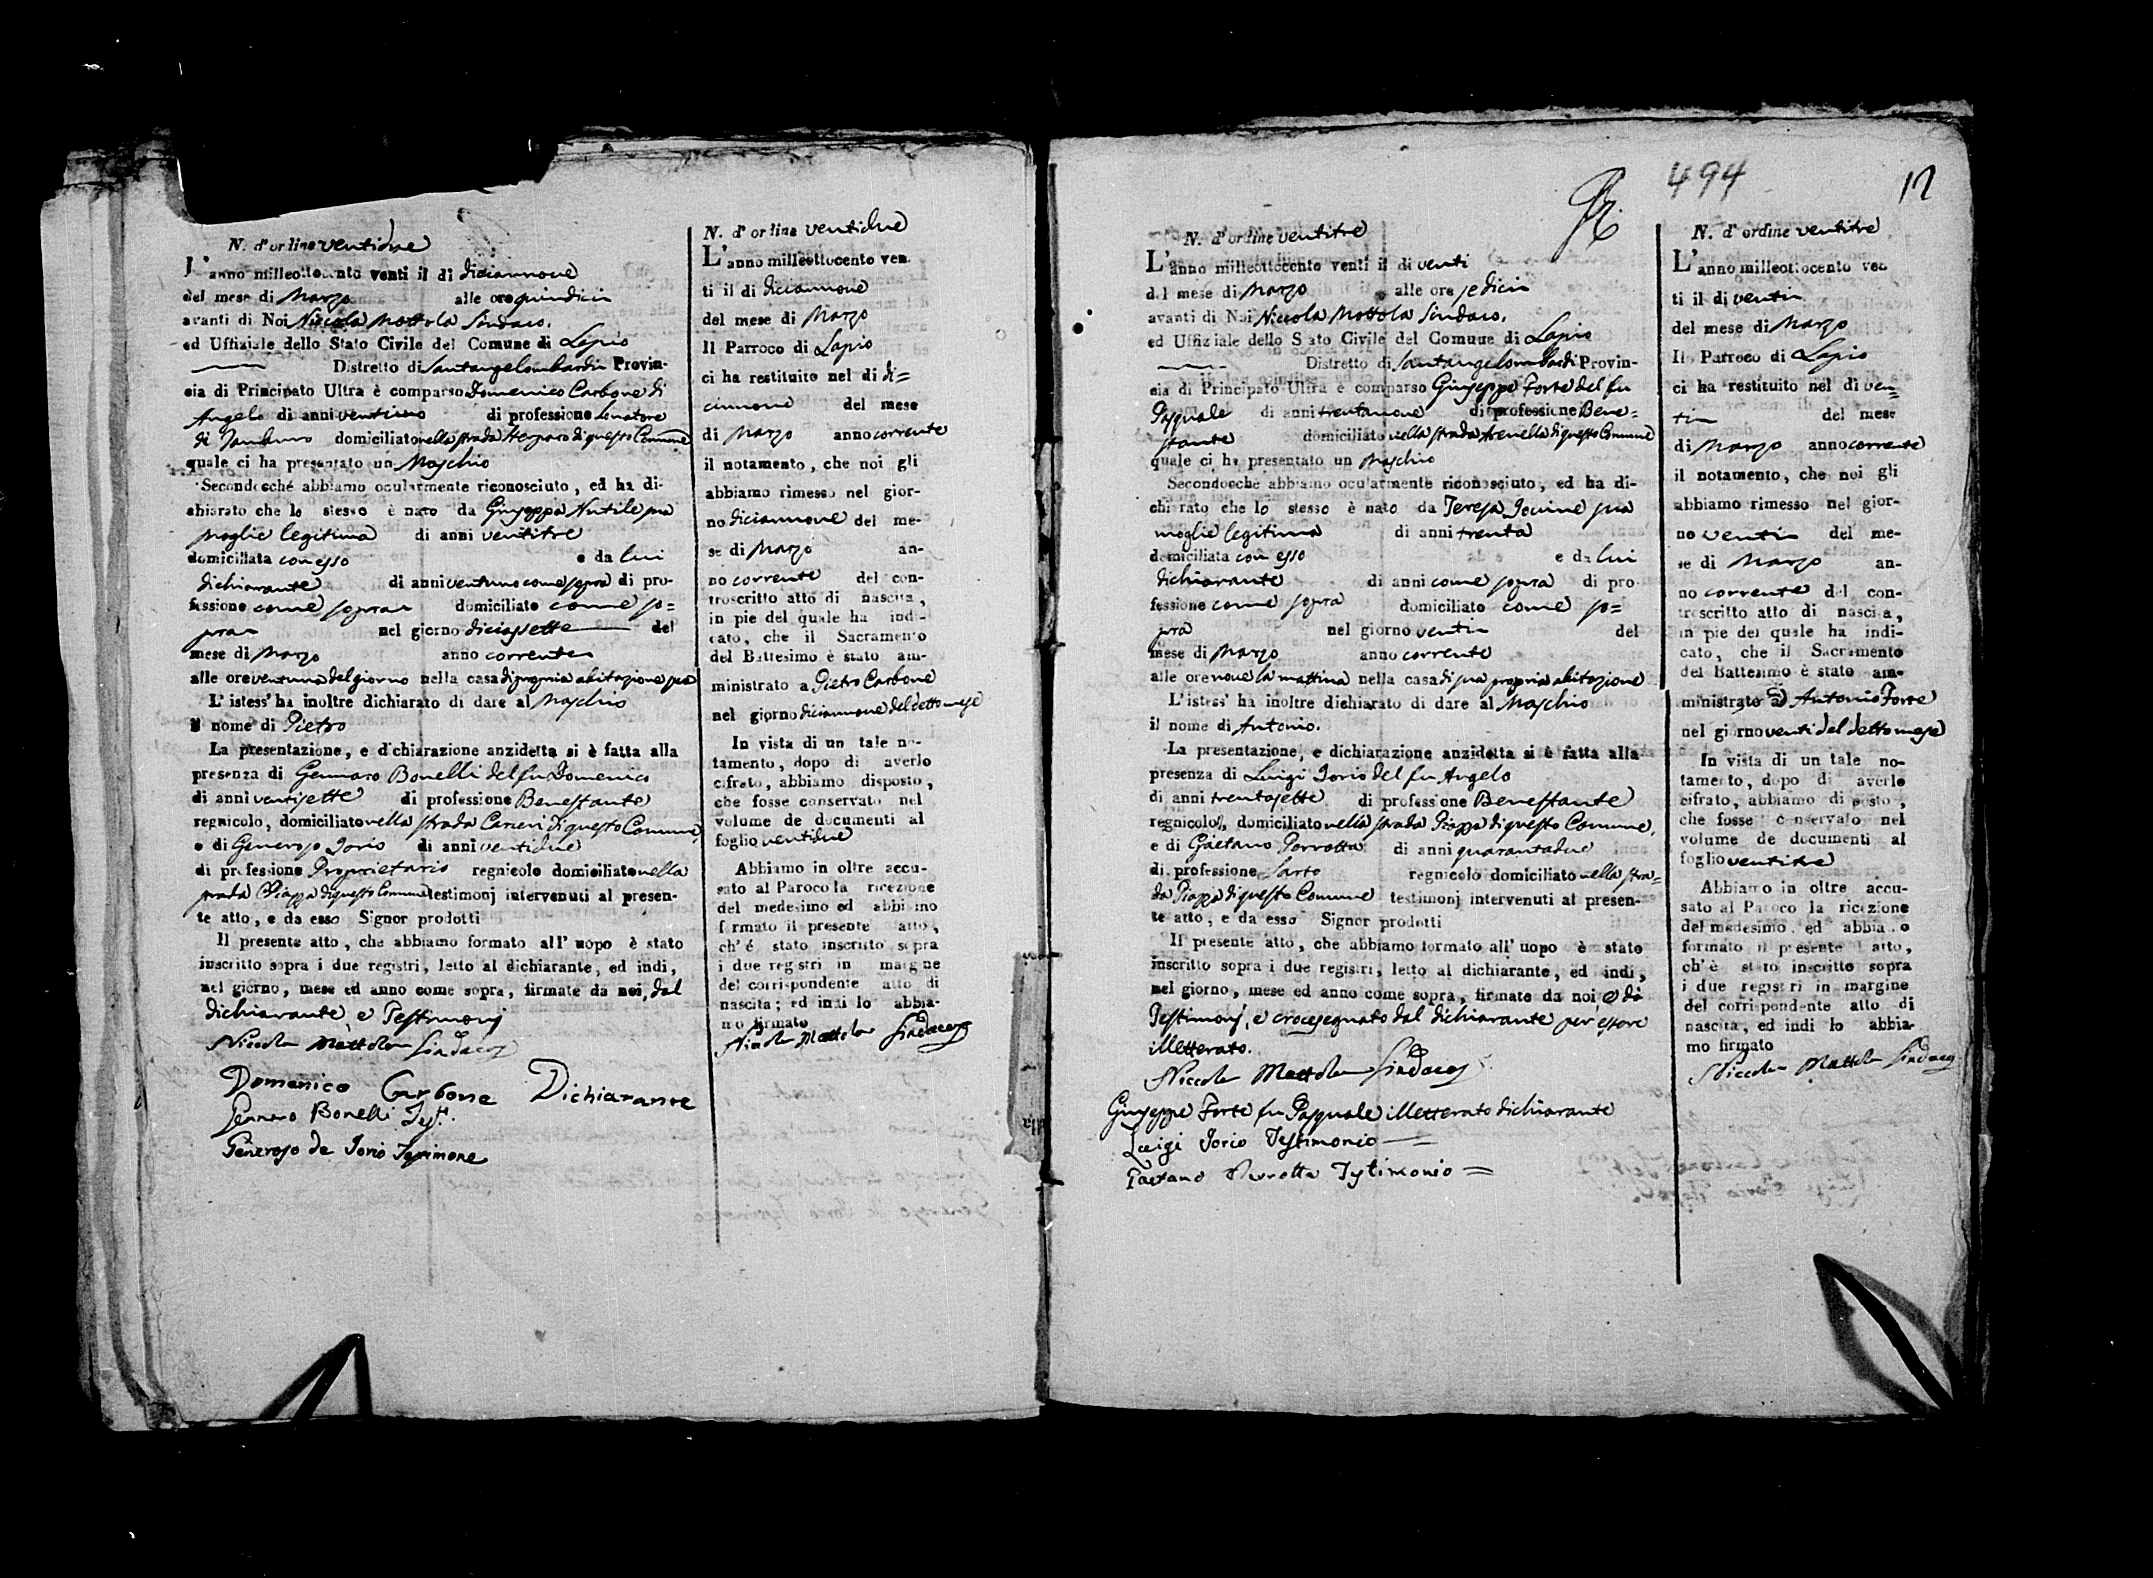 N. d'ordine ventidue
L'anno milleottocento venti il dì diciannove
del mese di Marzo alle ore quindici
avanti di Noi Niccola Mottola Sindaco,
ed Uffiziale dello Stato Civile del Comune di Lapio
Distretto di Santangelombardi Provin-
cia di Principato Ultra è comparso Domenico Carbone di
Angelo di anni ventuno di professione Sonatore
di Tamburro domiciliato nella strada di questo Comune
quale ci ha presentato un Maschio
Secondocché abbiamo ocularmente riconosciuto, ed ha di-
chiarato che lo stesso è nato da Giuseppa Nutile sua
moglie legitima di anni ventitre
domiciliata con esso e da lui
dichiarante di anni ventuno come sopra di pro-
fessione come sopra domiciliato come so=
pra nel giorno diciassette del
mese di Marzo anno corrente
alle ore ventuna del giorno nella casa di propria abitazione sua
L'istess' ha inoltre dichiarato di dare al Maschio
il nome di Pietro
La presentazione, e dichiarazione anzidetta si è fatta alla
presenza di Gennaro Bonelli del fu Domenico
di anni ventisette di professione Benestante
regnicolo, domiciliato nella strada Carieri di questo Comune,
e di Generoso Iorio di anni ventidue
di professione Proprietario regnicolo domiciliato nella
strada Piazza di questo Comune testimonj intervenuti al presen-
te atto, e da esso Signor prodotti
Il presente atto, che abbiamo formato all' uopo è stato
inscritto sopra i due registri, letto al dichiarante, ed indi,
nel giorno, mese ed anno come sopra, firmate da noi, dal
dichiarante, e Testimonj
Niccola Mottola Sindaco
Domenico Carbone Dichiarante
Gennaro Bonelli Tes.
Generoso de Iorio Testimone
N. d'ordine ventidue
L'anno milleottocento ven-
ti il di diciannove
del mese di Marzo
Il Parroco di Lapio
ci ha restituito nel di di=
cinnove del mese
di Marzo anno corrente
il notamento, che noi gli
abbiamo rimesso nel gior-
no diciannove del me-
se di Marzo an-
no corrente del con-
troscritto atto di nascita,
in pie del quale ha indi-
cato, che il Sacramento
del Battesimo è stato am-
ministrato a Pietro Carbone
nel giorno diciannove del detto mese
In vista di un tale no-
tamento, dopo di averlo
cifrato, abbiamo disposto,
che fosse conservato nel
volume de documenti al
foglio ventidue
Abbiamo in oltre accu-
sato al Paroco la ricezione
del medesimo ed abbiamo
formato il presente atto,
ch'é stato inscritto sopra
i due registri in margine
del corrispondente atto di
nascita; ed indi lo abbia-
mo firmato
Niccola Mottola Sindaco
494
12
N. d'ordine ventitre
L'anno milleottocento venti il di venti
del mese di Marzo alle ore sedici
avanti di Noi Niccola Mottola Sindaco,
ed Uffiziale dello Stato Civile del Comune di Lapio
Distretto di Santangelombardi Provin-
cia di Principato Ultra è comparso Giuseppe Forte del fu
Pasquale di anni trentanove di professione Bene=
stante domiciliato nella strada Arenella di questo Comune
quale ci ha presentato un Maschio
Secondocchè abbiamo ocularmente riconosciuto, ed ha di-
chiarato che lo stesso è nato da Teresa Iovine sua
moglie legitima di anni trenta
domiciliata con esso e da lui
dichiarante di anni come sopra di pro
fessione come sopra domiciliato come so=
pra nel giorno venti del
mese di Marzo anno corrente
alle ore nove la mattina nella casa di sua propria abitazione
L'istess' ha inoltre dichiarato di dare al Maschio
il nome di Antonio.
La presentazione, e dichiarazione anzidetta si è fatta alla
presenza di Luigi Iorio del fu Angelo
di anni trentasette di professione Benestante
regnicolo, domiciliato nella strada Piazza di questo Comune,
e di Gaetano Perrotta di anni quarantadue
di professione Sarto regnicolo domiciliato nella stra=
da Piazza di questo Comune testimonj intervenuti al presen-
te atto, e da esso Signor prodotti
Il presente atto, che abbiamo formato all' uopo è stato
inscritto sopra i due registri, letto al dichiarante, ed indi,
nel giorno, mese ed anno come sopra, firmato da noi e da
Testimonj, e crocesegnato dal dichiarante per essere
illetterato.
Niccola Mottola Sindaco
Giuseppe Forte fu Pasquale illetterato dichiarante
Luigi Iorio Testimonio
Gaetano Perrotta Testimonio =
N. d'ordine ventitre
L'anno milleottocento ven
ti il di venti
del mese di Marzo
Il Parroco di Lapio
ci ha restituito nel dì ven=
ti del mese
di Marzo anno corrente
il notamento, che noi gli
abbiamo rimesso nel gior-
no venti del me-
se di Marzo an-
no corrente del con-
troscritto atto di nascita,
in pie del quale ha indi-
cato, che il Sacramento
del Battesimo è stato am-
ministrato ad Antonio Forte
nel giorno venti del detto mese
In vista di un tale no-
tamento, dopo di averlo
cifrato, abbiamo disposto,
che fosse conservato nel
volume de documenti al
foglio ventitre
Abbiamo in oltre accu-
sato al Paroco la ricezione
del medesimo, ed abbiamo
formato il presente atto,
ch'è stato inscritto sopra
i due registri in margine
del corrispondente atto di
nascita, ed indi lo abbia-
mo firmato
Niccola Mottola Sindaco